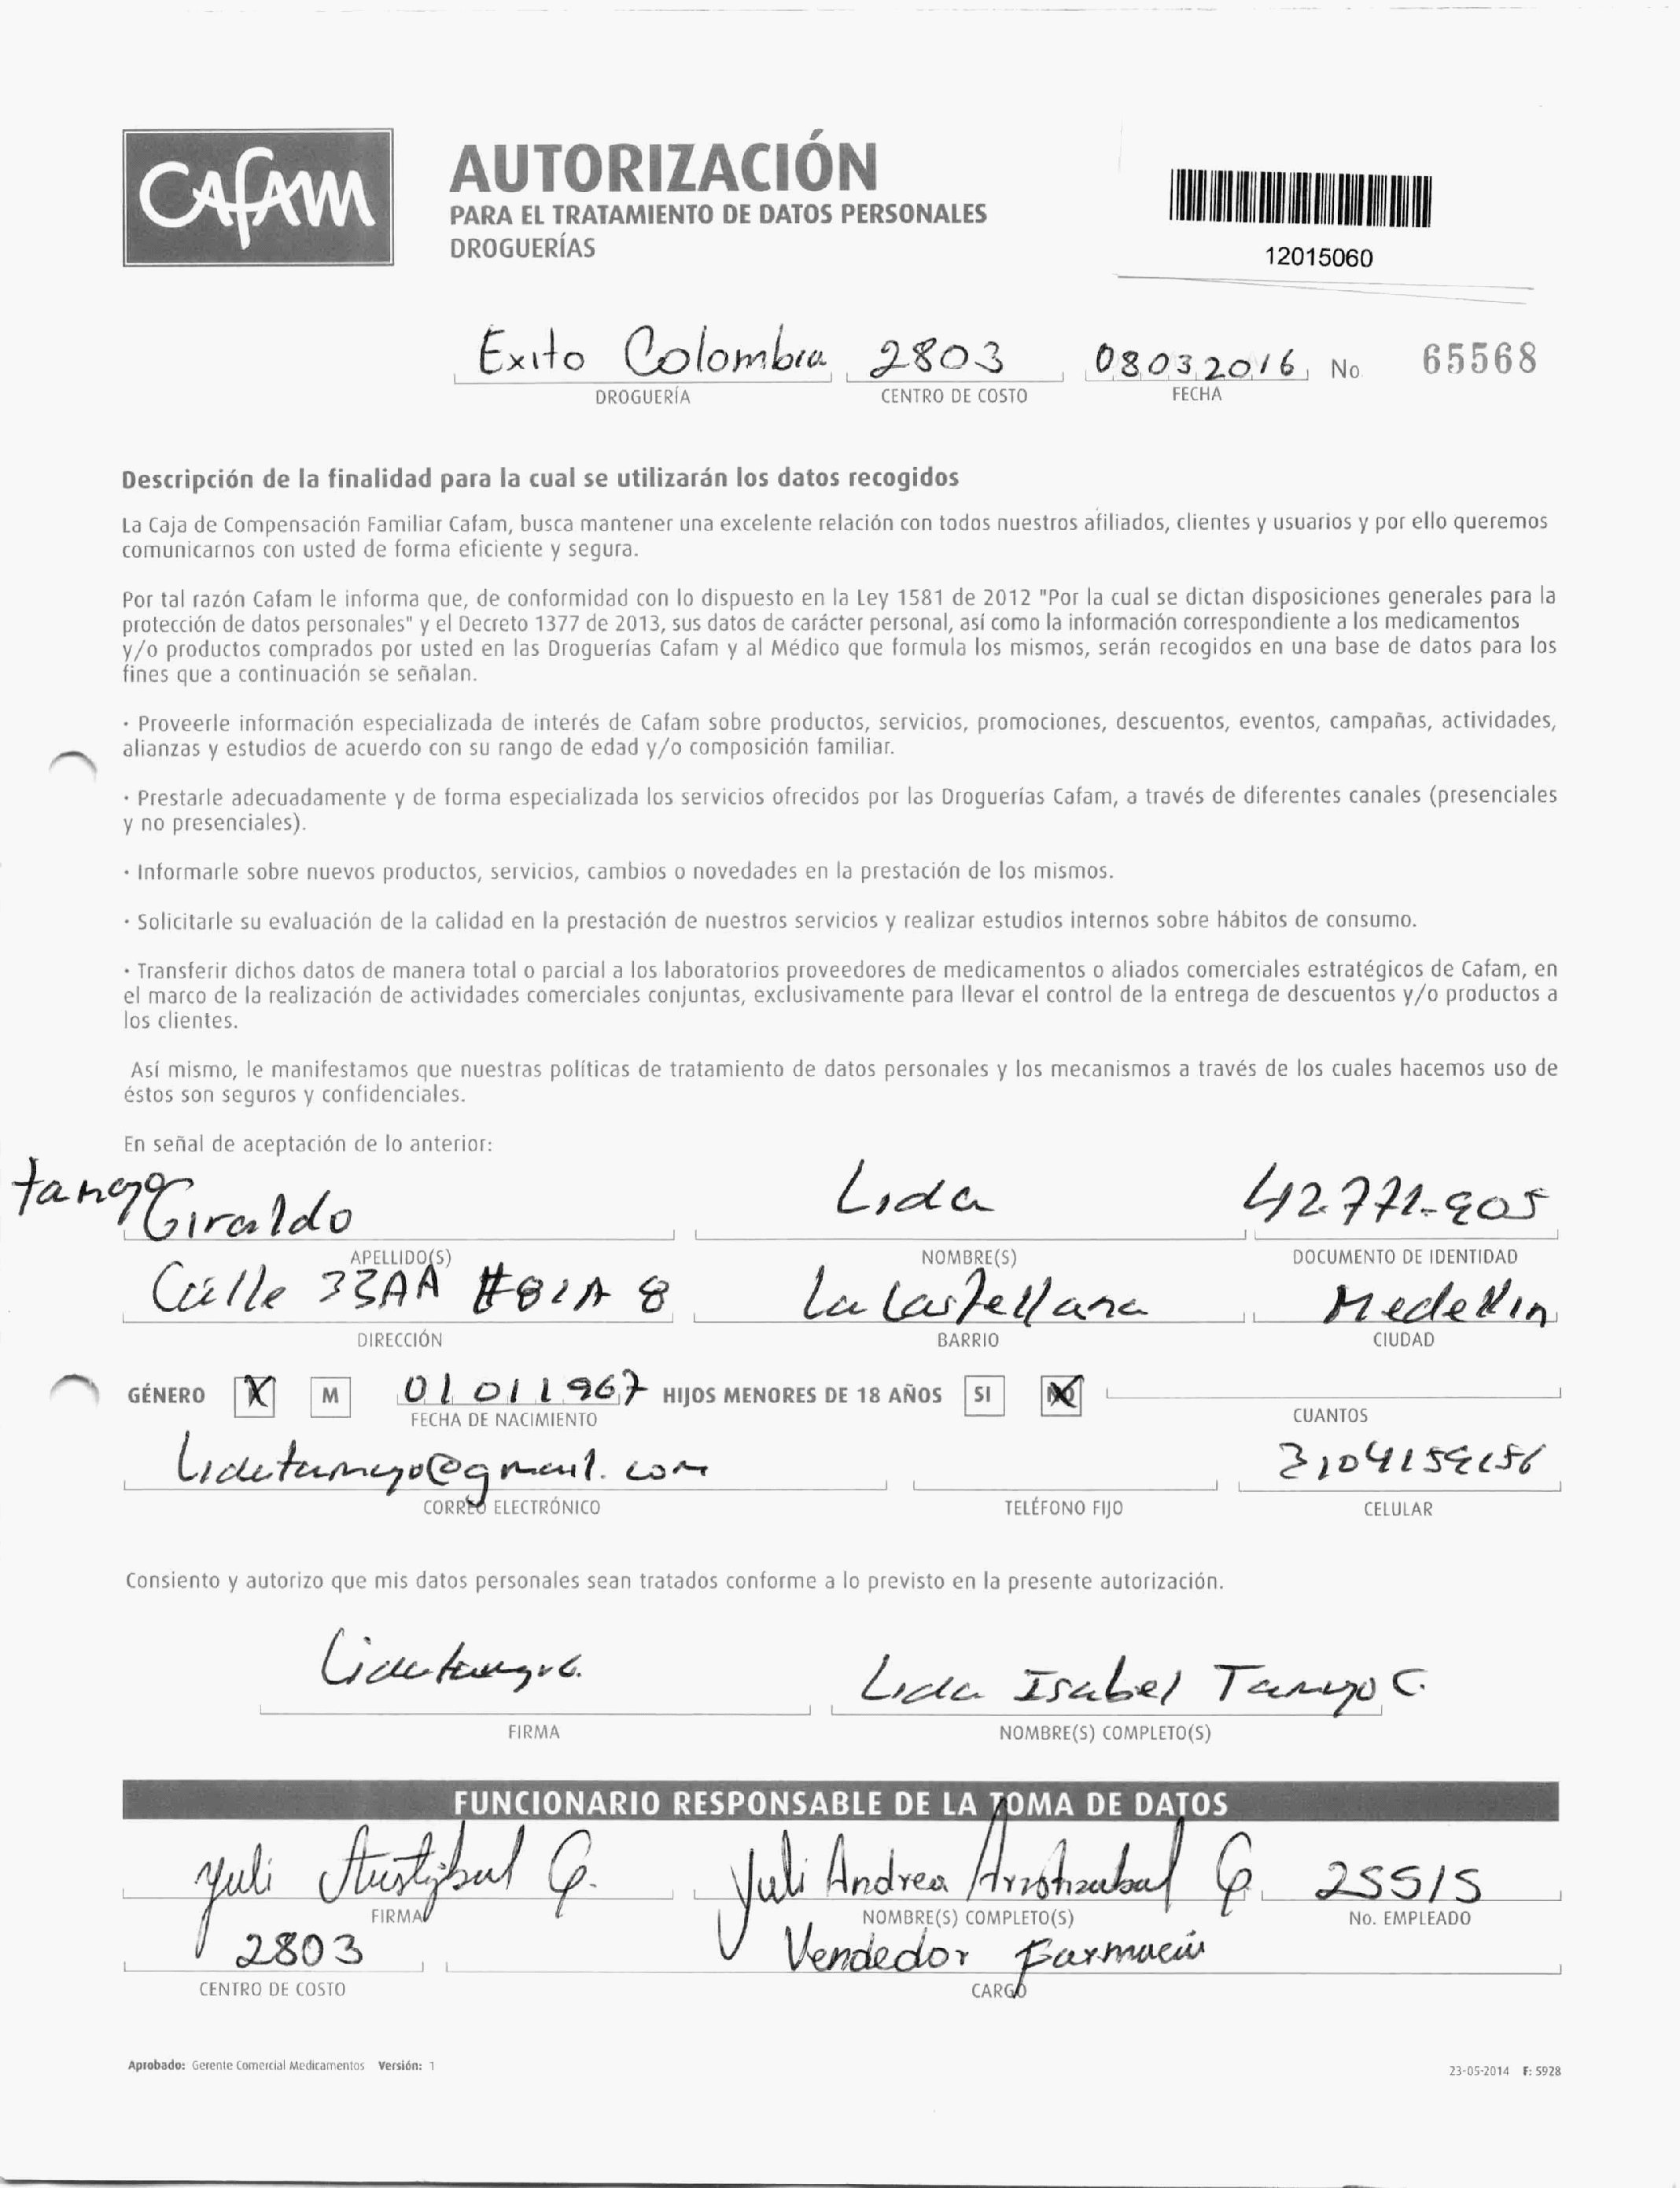 CAFAM
AUTORIZACIÓN
PARA EL TRATAMIENTO DE DATOS PERSONALES
DROGUERÍAS
12015060
Exito Colombia 2803 08032016 No 65568
DROGUERÍA CENTRO DE COSTO FECHA
Descripción de la finalidad para la cual se utilizarán los datos recogidos
La Caja de Compensación Familiar Cafam, busca mantener una excelente relación con todos nuestros afiliados, clientes y usuarios y por ello queremos
comunicarnos con usted de forma eficiente y segura.
Por tal razón Cafam le informa que, de conformidad con lo dispuesto en la Ley 1581 de 2012 "Por la cual se dictan disposiciones generales para la
protección de datos personales" y el Decreto 1377 de 2013, sus datos de carácter personal, así como la información correspondiente a los medicamentos
y/o productos comprados por usted en las Droguerías Cafam y al Médico que formula los mismos, serán recogidos en una base de datos para los
fines que a continuación se señalan.
· Proveerle información especializada de interés de Cafam sobre productos, servicios, promociones, descuentos, eventos, campañas, actividades,
alianzas y estudios de acuerdo con su rango de edad y/o composición familiar.
· Prestarle adecuadamente y de forma especializada los servicios ofrecidos por las Droguerías Cafam, a través de diferentes canales (presenciales
y no presenciales).
· Informarle sobre nuevos productos, servicios, cambios o novedades en la prestación de los mismos.
· Solicitarle su evaluación de la calidad en la prestación de nuestros servicios y realizar estudios internos sobre hábitos de consumo.
· Transferir dichos datos de manera total o parcial a los laboratorios proveedores de medicamentos o aliados comerciales estratégicos de Cafam, en
el marco de la realización de actividades comerciales conjuntas, exclusivamente para llevar el control de la entrega de descuentos y/o productos a
los clientes.
Así mismo, le manifestamos que nuestras políticas de tratamiento de datos personales y los mecanismos a través de los cuales hacemos uso de
éstos son seguros y confidenciales.
En señal de aceptación de lo anterior:
Giraldo Lida 42.771.905
APELLIDO(S) NOMBRE(S) DOCUMENTO DE IDENTIDAD
Calle 33AA #81A 8 La Castellana Medellin
DIRECCIÓN BARRIO CIUDAD
GÉNERO X M 01011967 HIJOS MENORES DE 18 AÑOS SI NO
FECHA DE NACIMIENTO CUANTOS
lidatamayo@gmail.com
CORREO ELECTRÓNICO TELÉFONO FIJO CELULAR
Consiento y autorizo que mis datos personales sean tratados conforme a lo previsto en la presente autorización.
Lida Isabel Tamayo G.
FIRMA NOMBRE(S) COMPLETO(S)
FUNCIONARIO RESPONSABLE DE LA TOMA DE DATOS
Yuli Aristizabal G. Yuli Andrea Aristizabal G. 25515
FIRMA NOMBRE(S) COMPLETO(S) No. EMPLEADO
2803 Vendedor Farmacia
CENTRO DE COSTO CARGO
Aprobado: Gerente Comercial Medicamentos Versión: 1 23-05-2014 F: 5928